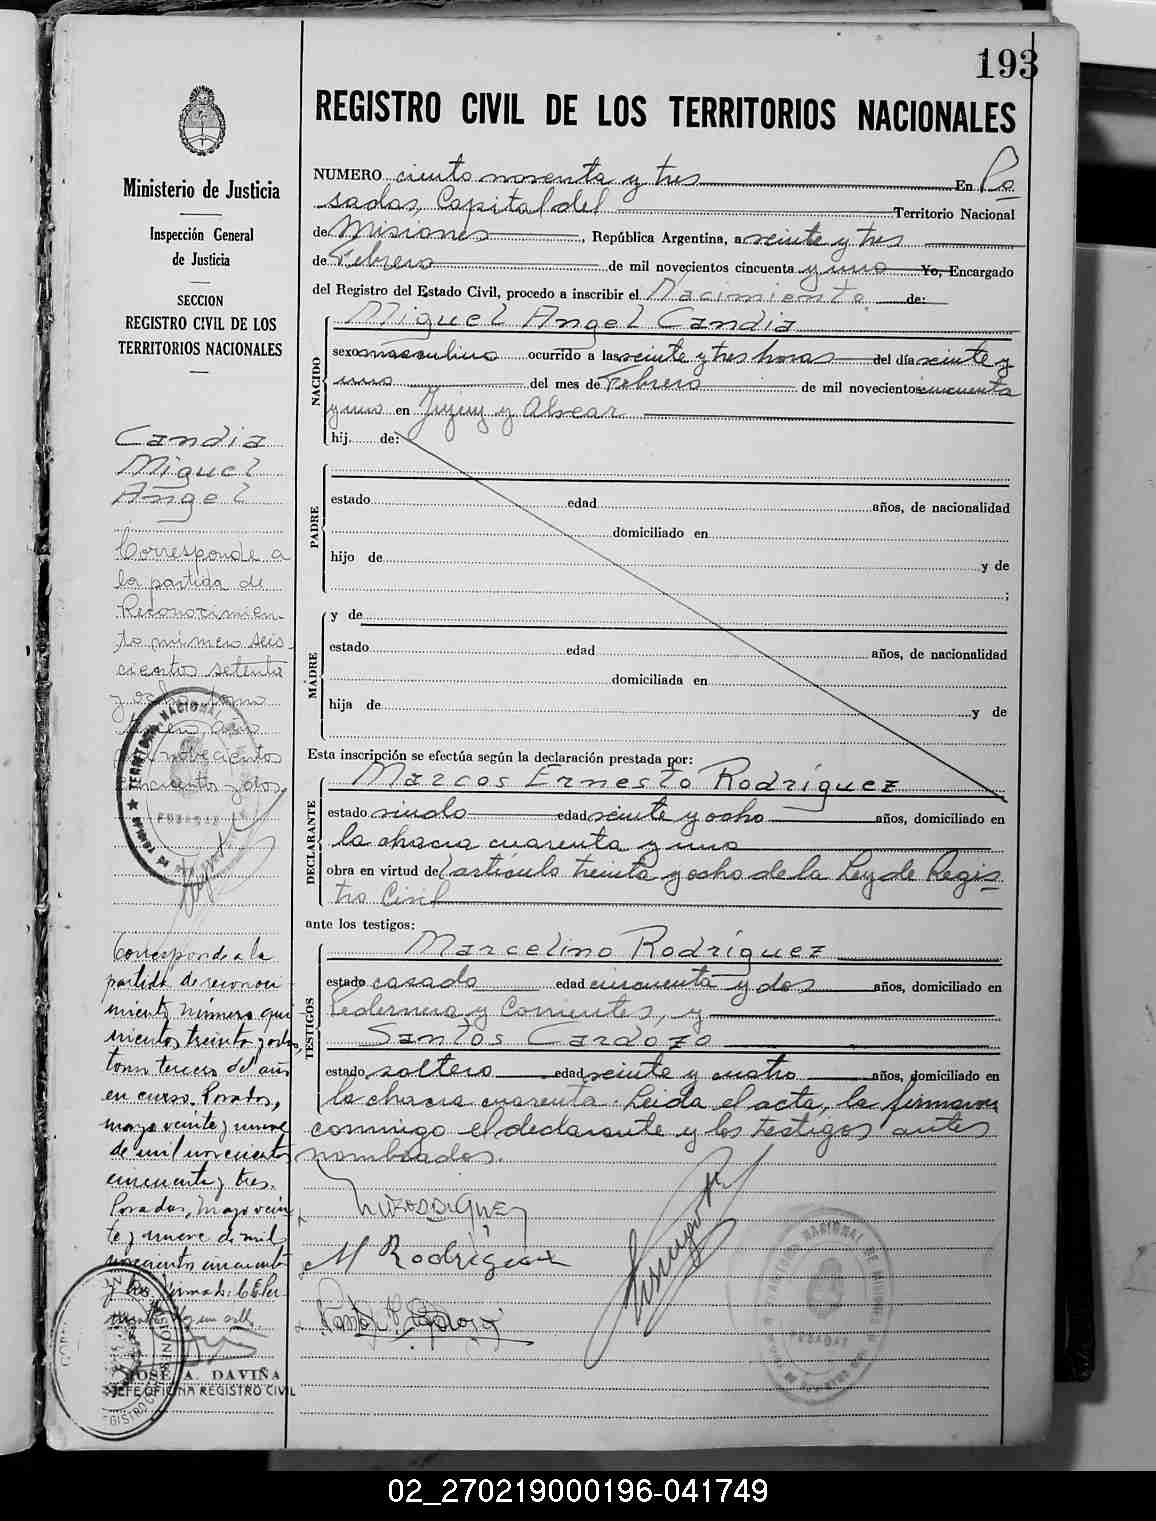 193
REGISTRO CIVIL DE LOS TERRITORIOS NACIONALES
Ministerio de Justicia
Inspección General
de Justicia
SECCION
REGISTRO CIVIL DE LOS
TERRITORIOS NACIONALES
Candia
Miguel
Angel
Corresponde a
la partida de
Reconocimien-
to número seis
cientos setenta
y ocho tomo
novecientos
cincuenta y dos
Corresponde a la
partida de reconoci
miento número qui
nientos treinta y ocho
tomo tercero del año
en curso. Posadas,
mayo veinte y nueve
de mil novecientos
cincuenta y tres.
Posadas, Mayo vein
te y nueve de mil
novecientos cincuenta
y tres
JOSE A. DAVIÑA
JEFE OFICINA REGISTRO CIVIL
NUMERO ciento noventa y tres En Po
sadas, Capital del Territorio Nacional
de Misiones, República Argentina, a veinte y tres
de Febrero de mil novecientos cincuenta y uno Yo, Encargado
del Registro del Estado Civil, procedo a inscribir el Nacimiento de:
NACIDO
Miguel Angel Candia
sexo masculino ocurrido a las veinte y tres horas del día veinte y
uno del mes de Febrero de mil novecientos cincuenta
y uno en Jujuy y Alvear
hij...... de:
PADRE
estado edad años, de nacionalidad
domiciliado en
hijo de y de
;
MADRE
y de
estado edad años, de nacionalidad
domiciliada en
hija de y de
Esta inscripción se efectúa según la declaración prestada por:
DECLARANTE
Marcos Ernesto Rodríguez
estado viudo edad veinte y ocho años, domiciliado en
la chacra cuarenta y uno
obra en virtud del artículo treinta y ocho de la Ley de Regis
tro Civil
ante los testigos:
TESTIGOS
Marcelino Rodríguez
estado casado edad cincuenta y dos años, domiciliado en
Pedernera y Corrientes, y
Santos Cardozo
estado soltero edad veinte y cuatro años, domiciliado en
la chacra cuarenta. Leida el acta, la firmaron
conmigo el declarante y los testigos antes
nombrados.
M Rodriguez
02_270219000196-041749